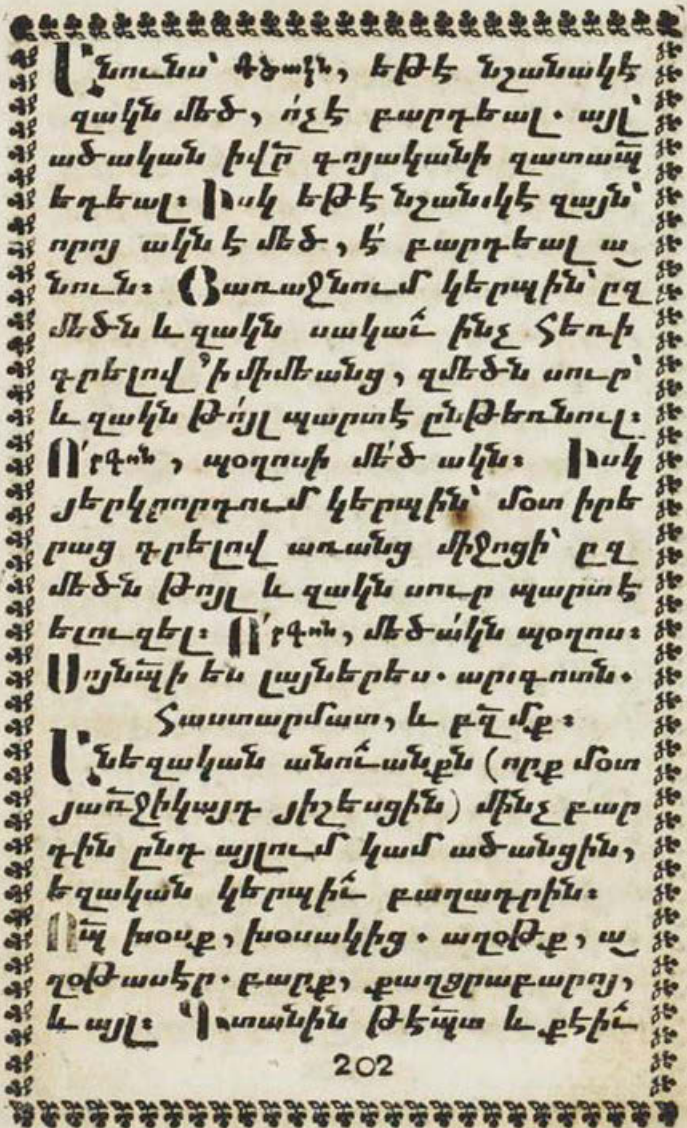 Անունս՝ Մեծակն, եթէ նշանակէ
զակն մեծ, ո՛չ է բարդեալ. այլ՝
ածական իվր̃ գոյականի զատապ̃
եդեալ։ Իսկ եթէ նշանակէ զայն՝
որոյ ակն է մեծ, է՛ բարդեալ ա
նուն։ Յառաջնում կերպին՝ ըզ
մեծն և զակն սակաւ̃ ինչ հեռի
գրելով ՚ի միմեանց, զմեծն սուր՝
և զակն թո՛յլ պարտէ ընթեռնուլ։
Ո՛րգոն, պօղոսի մե՛ծ ակն։ Իսկ
յերկրորդում կերպին՝ մօտ իրե
րաց գրելով առանց միջոցի՝ ըզ
մեծն թոյլ և զակն սուր պարտէ
ելուզել։ Ո՛րգոն, մեծա՛կն պօղոս։
Սոյնպ̃ի են լայներես. արագոտն.
հաստարմատ, և բզ̃մք։
Անեզական անուանքն (որք մօտ
յառ̃ջիկայդ յիշեսցին) մինչ բար
դին ընդ այլում կամ ածանցին,
եզական կերպիւ̃ բաղադրին։
Ոպ̃ խօսք, խօսակից. աղօթք, ա
ղօթասէր. բարք, քաղցրաբարոյ,
և այլ։ Գտանին թէպ̃տ և քէիւ̃
202